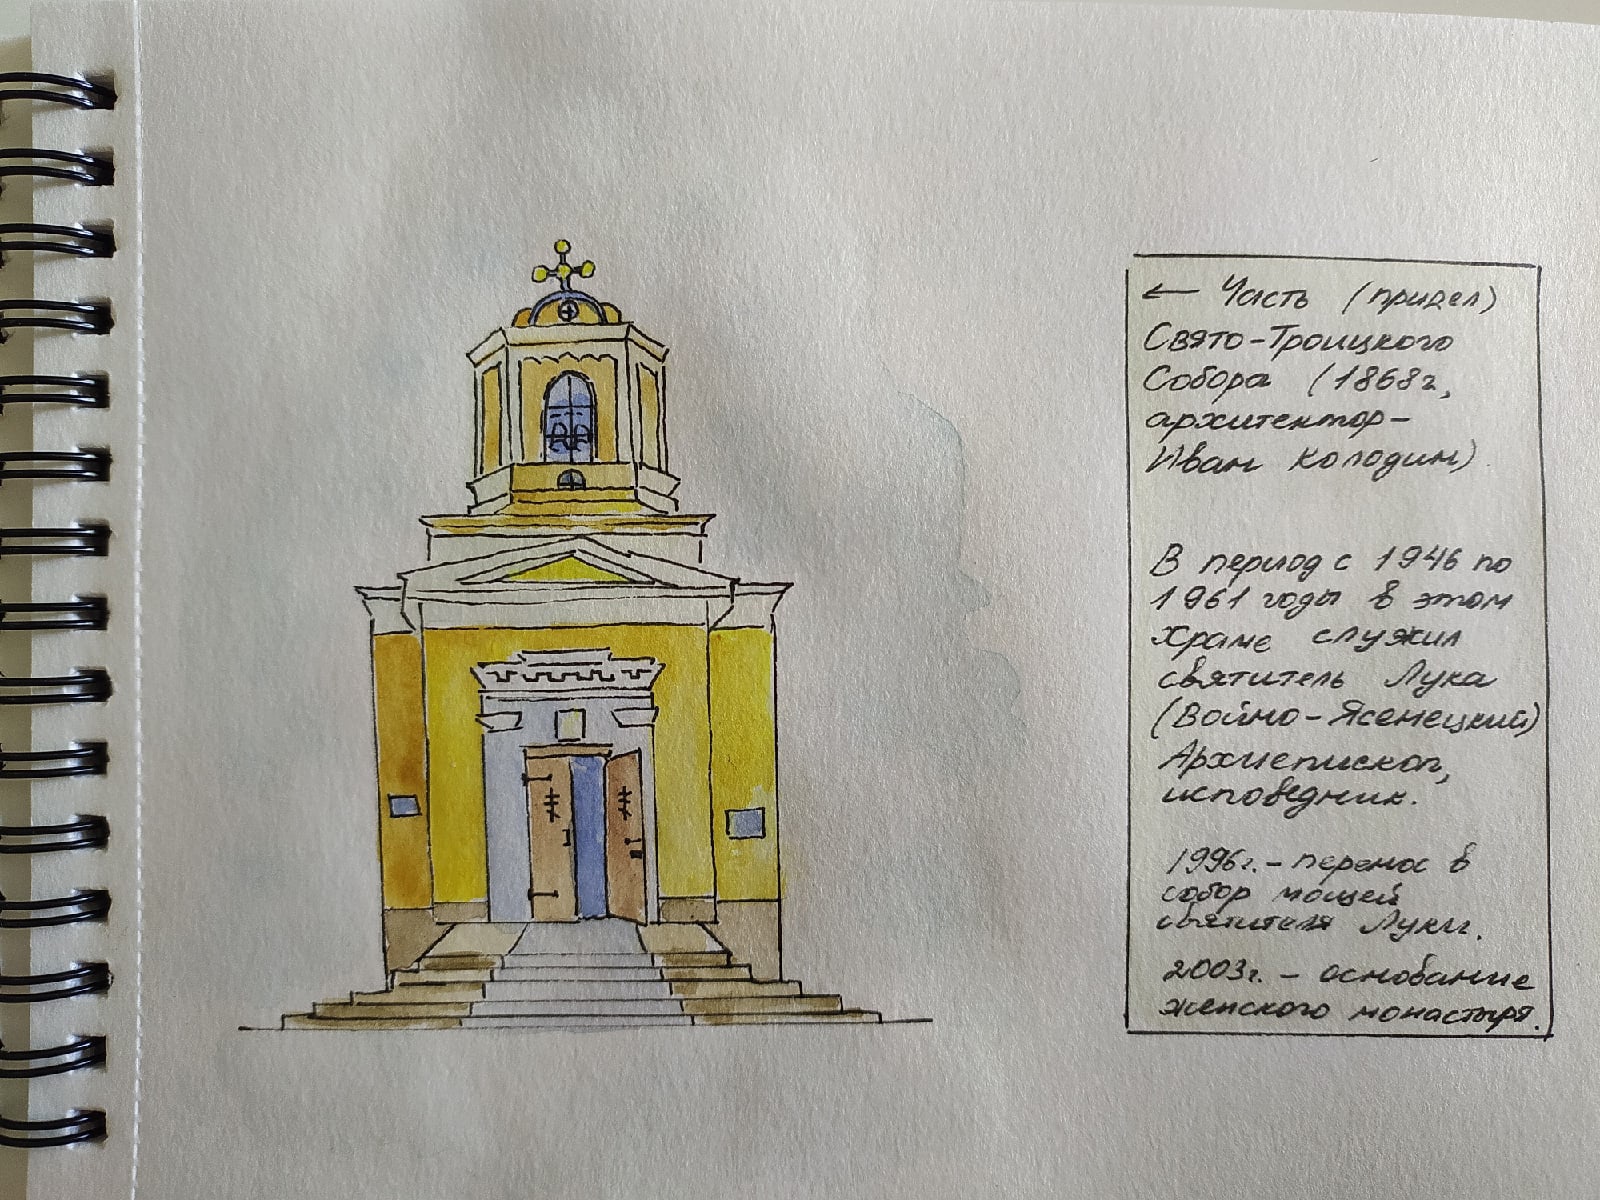 ← Часть (придел)
Свято-Троицкого
Собора (1868г,
архитектор-
Иван Колодин)
В период с 1946 по
1961 годы в этом
храме служил
святитель Лука
(Войно-Ясенецкий)
Архиепископ,
исповедник.
1996г. - перенос в
собор мощей
святителя Луки.
2003г. - основание
женского монастыря.